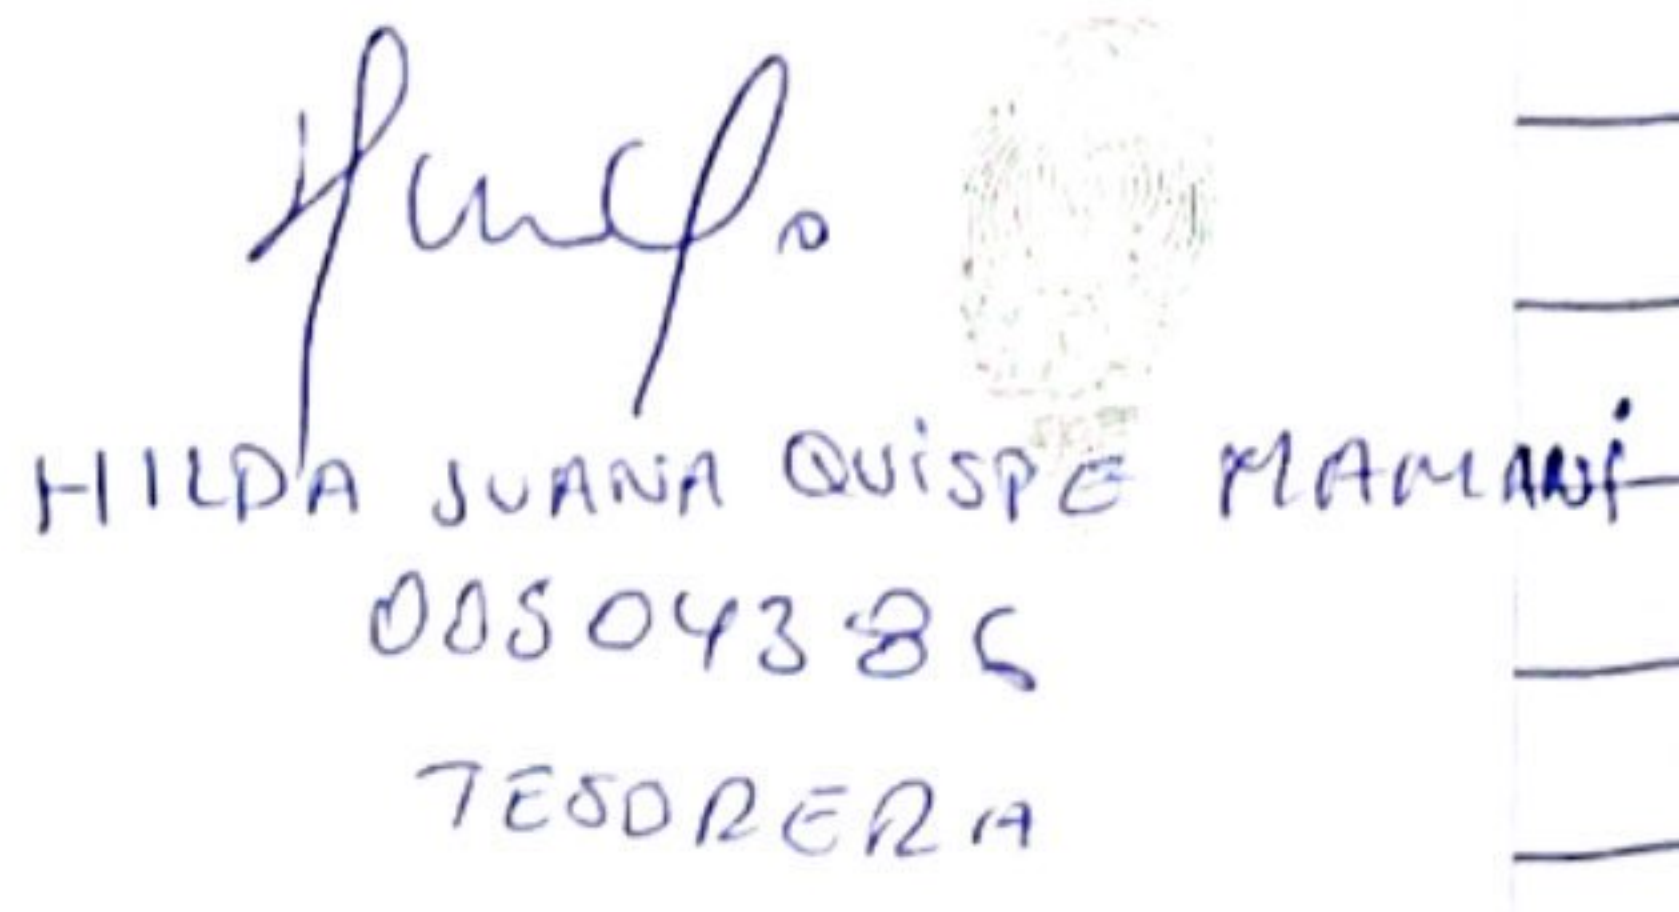 HILDA JUANA QUiSPE MAMANi
00504386
TESORERA